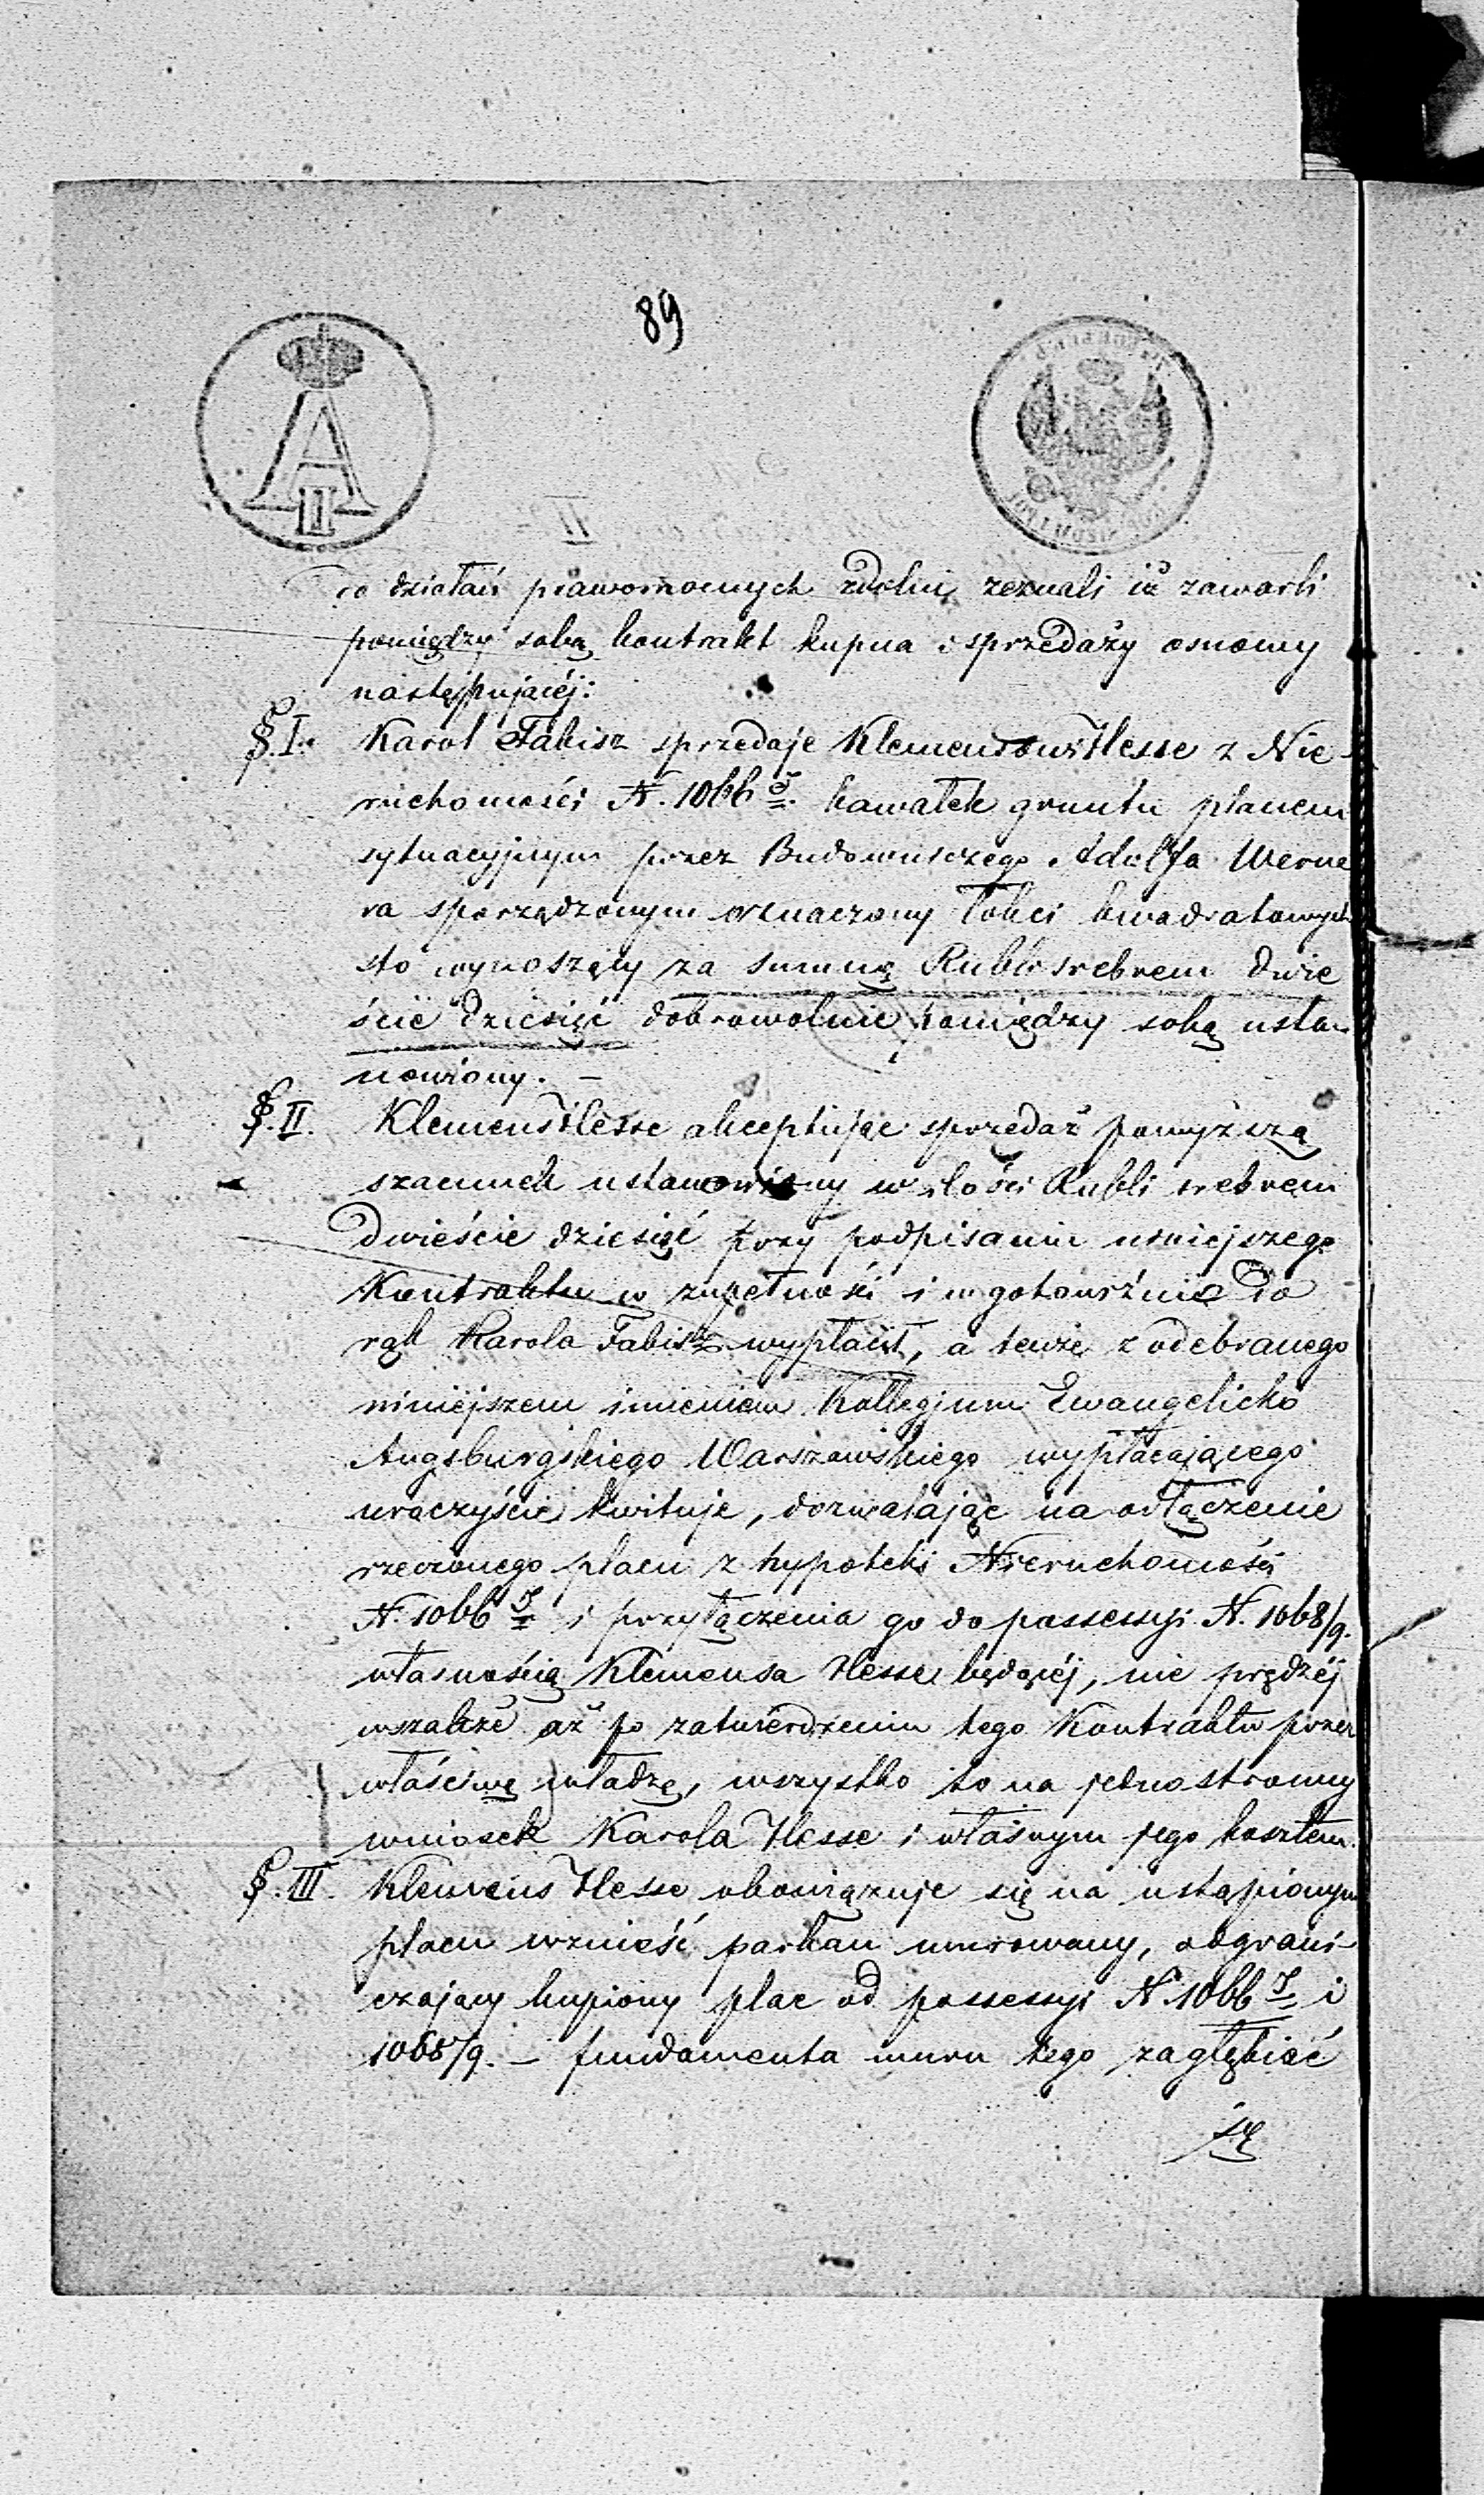 89
A
II
do działań prawomocnych zdolni, zeznali iż zawarli
pomiędzy sobą kontrakt kupna i sprzedaży osnowy
następującéj:
§. I. Karol Fabisz sprzedaje Klemensowi Hesse z Nie-
ruchomości N. 1066 kawałek gruntu planem
sytuacyjnym przez Budowniczego Adolfa Werne
ra sporządzonym oznaczony łokci kwadratowych
sto wynoszący za summę Rubli srebrem dwie
ście dziesięć dobrowolnie pomiędzy sobą usta-
nowiony. —
§. II. Klemens Hesse akceptując sprzedaż powyższą
szacunek ustanowiony w ilości Rubli srebrem
Dwieście dziesięć przy podpisaniu niniejszego
Kontraktu w zupełności i w gotowiźnie do
rąk Karola Fabisz wypłacił, a tenże z odebranego
niniéjszem imieniem Kollegjum Ewangelicko
Augsburgskiego Warszawskiego wypłacającego
uroczyście kwituje, dozwalając na odłączenie
rzeczonego placu z hypoteki Nieruchomości
N. 1066 i przyłączenia go do possessyi N. 1068/9.
własnością Klemensa Hesse będącéj, nie prędzéj
wszakże aż po zatwierdzeniu tego Kontraktu przez
właściwę władzę, wszystko to na jednostronny
wniosek Karola Hesse i własnym jego kosztem.
§. III. Klemens Hesse obowiązuje się na ustąpionym
placu wznieść parkan murowany, odgrani-
czający kupiony plac od possessyi N. 1066 i
1068/9. — fundamenta muru tego zagłębiać
się